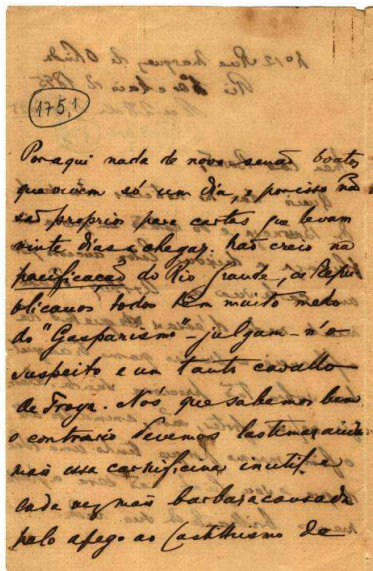 175,1
Por aqui nada de novo senão boatos
que vivem só um dia, e por isso não
são proprios para cartas que levam
vinte dias a chegar. Não creio na
pacificação do Rio Grande, os Repu-
blicanos todos têm muito medo
do "Gasparismo" - julgam-n'o
suspeito e um tanto cavallo
de Troya. Nós que sabemos bem
o contrario devemos lastimar ainda
mais essa carnificina inutil e
cada vez mais barbara causada
pelo apego ao Castilhismo de